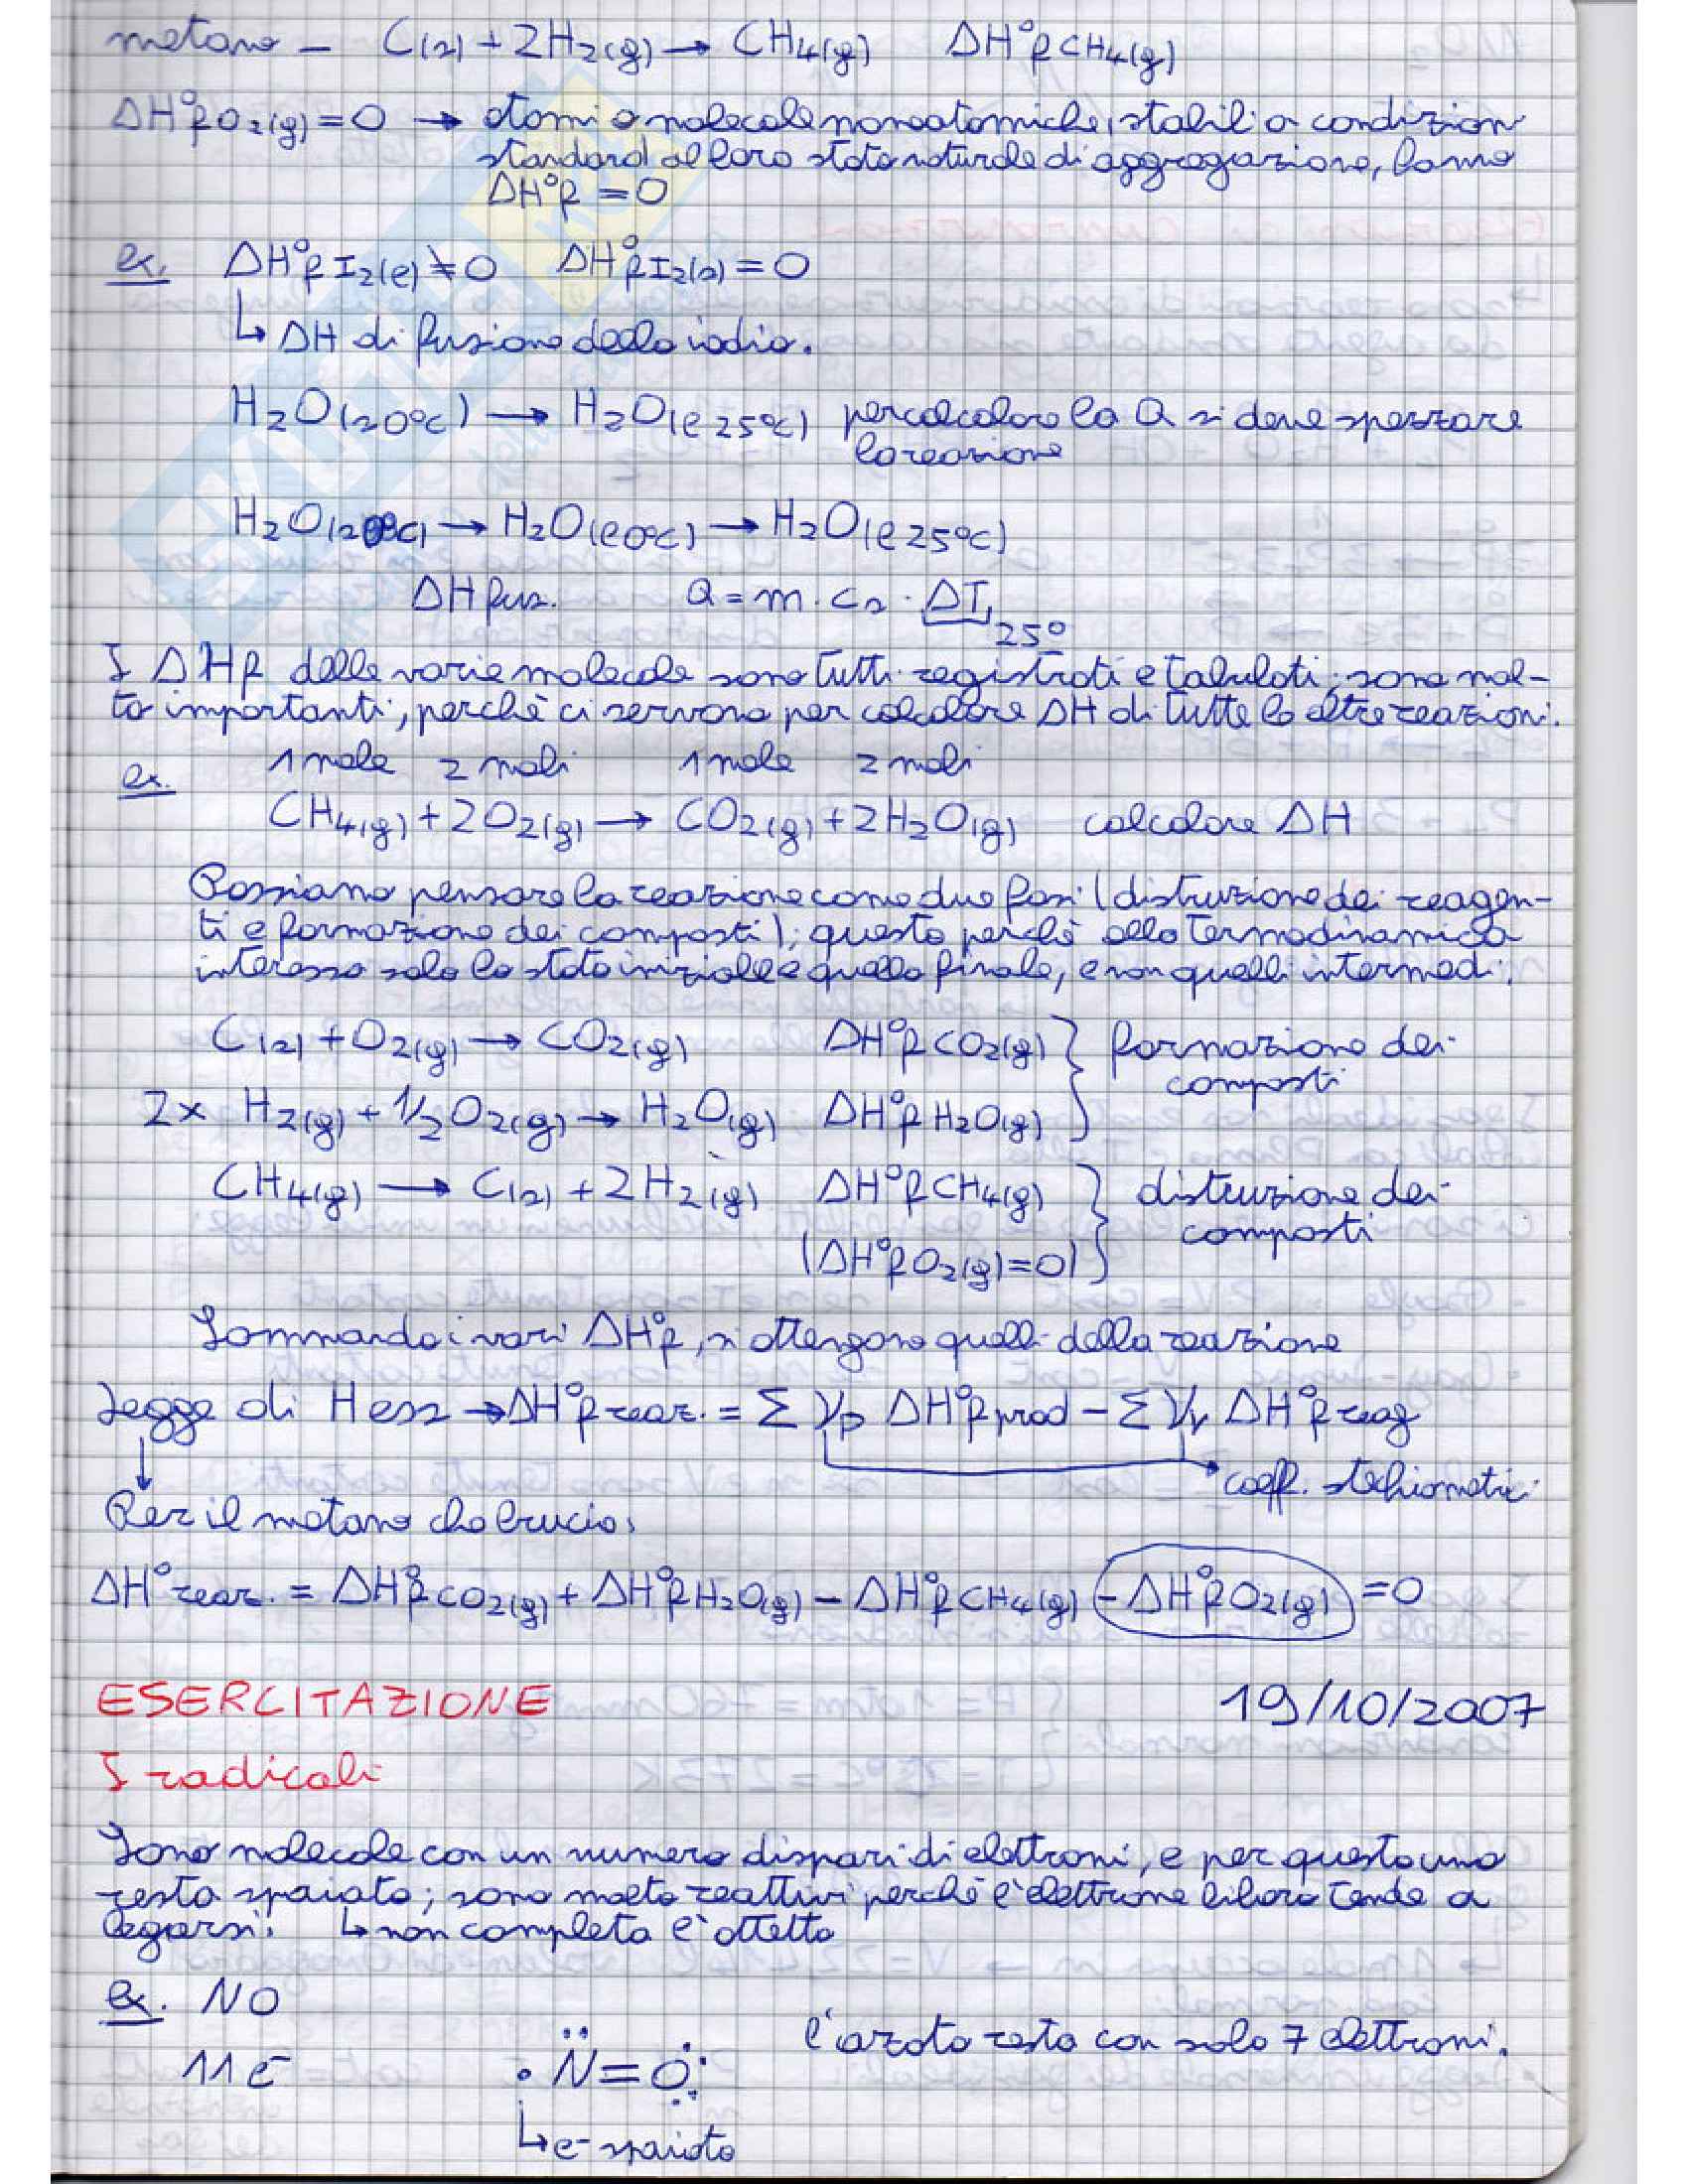 metano – C(s) + 2H2(g) → CH4(g)   ΔH°f CH4(g)
ΔH°f O2(g) = 0 → atomi o molecole monoatomiche, stabili a condizioni
standard al loro stato naturale di aggregazione, hanno
ΔH°f = 0
ex.   ΔH°f I2(l) ≠ 0   ΔH°f I2(s) = 0
↳ ΔH di fusione dello iodio.
H2O(s 0°C) → H2O(l 25°C)   per calcolare la Q si deve spezzare
la reazione
H2O(s 0°C) → H2O(l 0°C) → H2O(l 25°C)
ΔH fus.   Q = m · cs · ΔT
25°
I ΔHf delle varie molecole sono tutti registrati e tabulati; sono mol-
to importanti, perchè ci servono per calcolare ΔH di tutte le altre reazioni.
1 mole   2 moli   1 mole   2 moli
ex.
CH4(g) + 2O2(g) → CO2(g) + 2H2O(g)   calcolare ΔH
Possiamo pensare la reazione come due fasi (distruzione dei reagen-
ti e formazione dei composti); questo perchè alla termodinamica
interessa solo lo stato iniziale e quello finale, e non quelli intermedi.
C(s) + O2(g) → CO2(g)   ΔH°f CO2(g) } formazione dei
composti
2x   H2(g) + 1/2 O2(g) → H2O(g)   ΔH°f H2O(g)
CH4(g) → C(s) + 2H2(g)   ΔH°f CH4(g) } distruzione dei
composti
(ΔH°f O2(g) = 0)
Sommando i vari ΔH°f, si ottengono quelli della reazione
Legge di Hess → ΔH°f reaz. = Σ νp ΔH°f prod – Σ νr ΔH°f reag
coeff. stechiometrici
Per il metano che brucia:
ΔH°reaz. = ΔH°f CO2(g) + ΔH°f H2O(g) – ΔH°f CH4(g) – ΔH°f O2(g) = 0
ESERCITAZIONE   19/10/2007
I radicali
Sono molecole con un numero dispari di elettroni, e per questo uno
resta spaiato; sono molto reattivi perchè l'elettrone libero tende a
legarsi.   ↳ non completa l'ottetto
ex. NO
11 e-   · N = O   l'azoto resta con solo 7 elettroni.
↳ e- spaiato